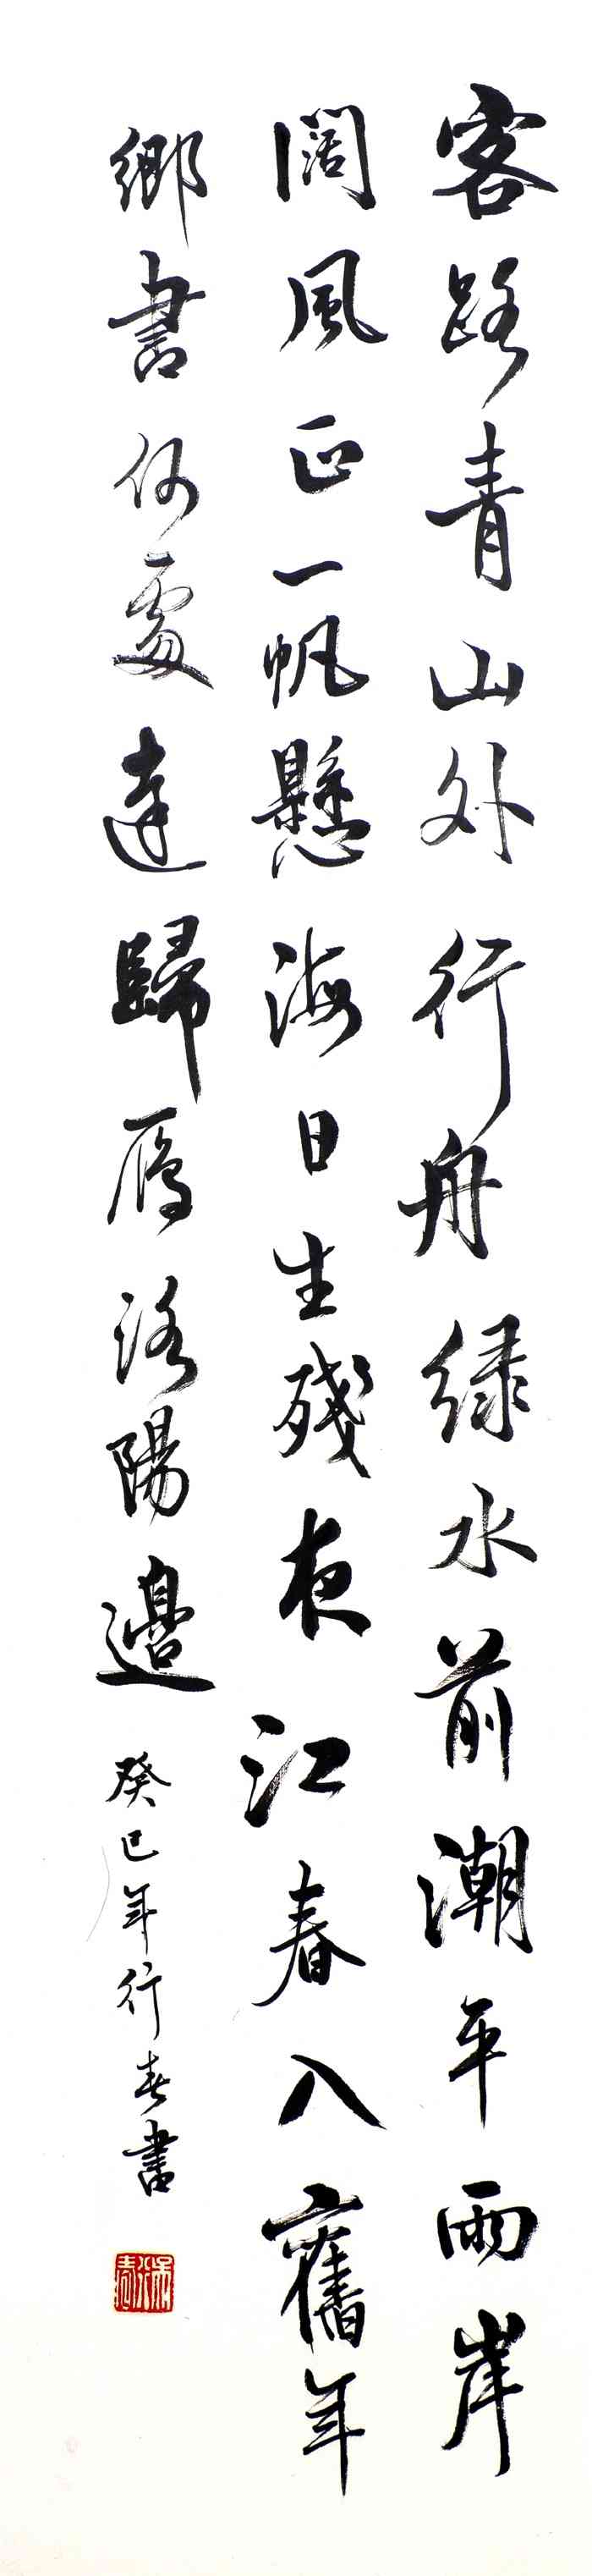 客路青山外行舟绿水前潮平兩岸
闊風正一帆懸海日生殘夜江春入舊年
鄉書何處達歸雁洛陽邊
癸巳年行春書